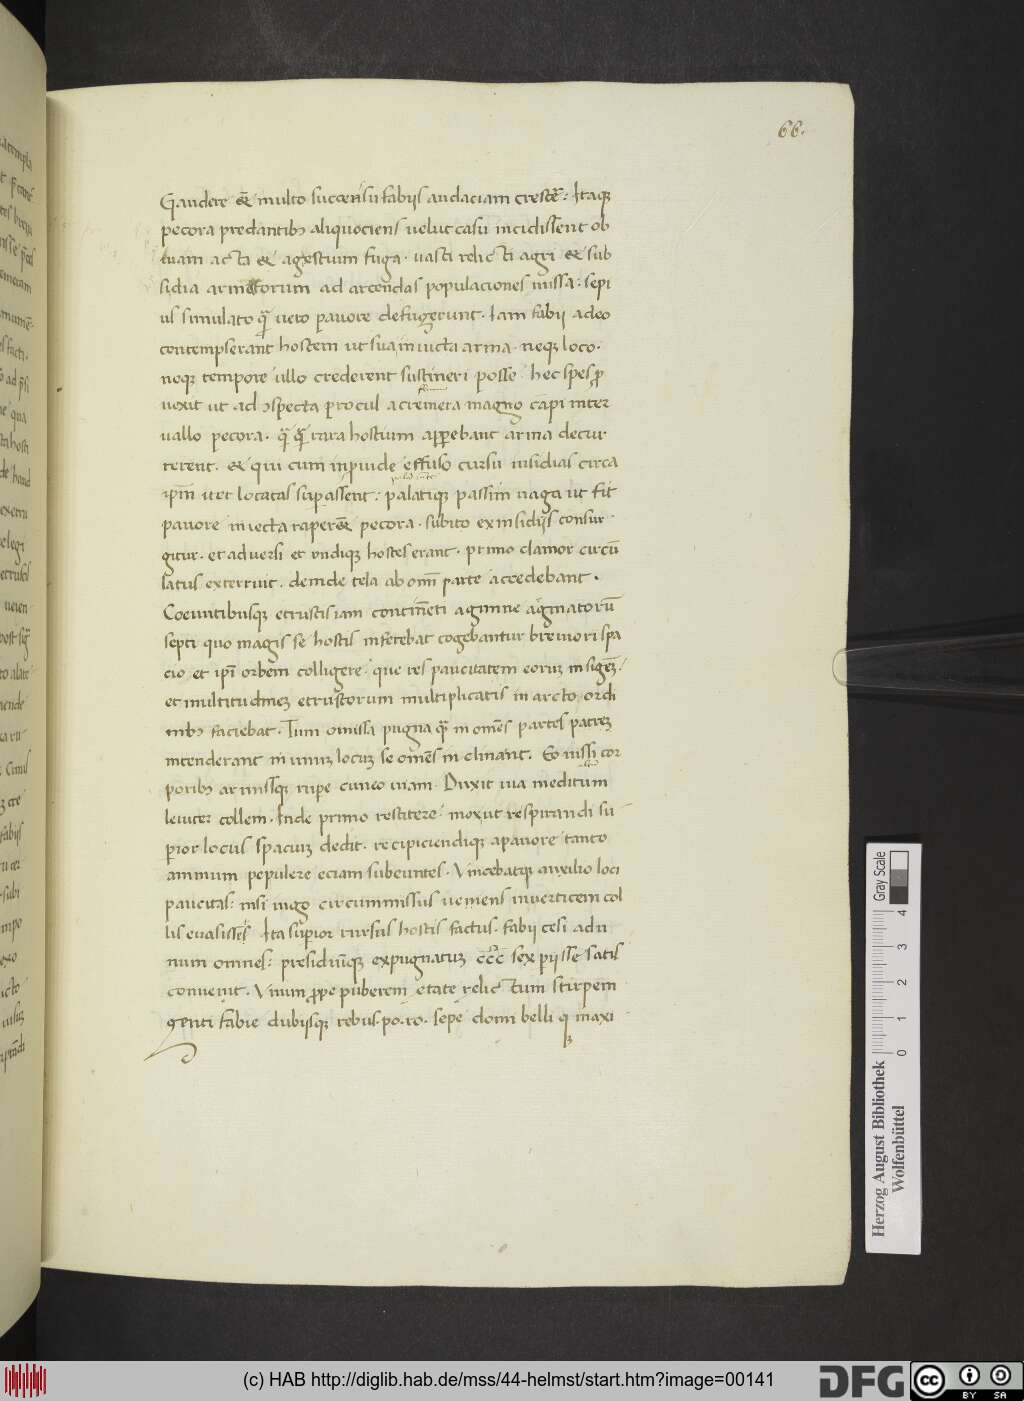 66.
Gaudere & multo succensu fabiis audaciam crescẽ: Itaqꝫ
pecora predantibꝰ aliquociens uelut casu incidissent ob
tuam acta & agestium fuga. uasti relicti agri & sub
sidia armatorum ad arcendas populaciones missa: sepi
us simulato qͣ uero pauore defugerunt. Iam fabii adeo
contempserant hostem ut sua inuicta arma. neqꝫ loco.
neqꝫ tempore ullo crederent sustineri posse. hec spes ꝓ
uexit ut ad ɔspecta procul a cremera magno cãpi inter
uallo pecora. qͣ qͣ rara hostium apꝑebant arma decur
rerent. & qui cum inꝓuide effuso cursu insidias circa
ipm̃ iter locatas suꝑassent: palatiqꝫ passim uaga ut fit
pauore iniecta raper& pecora. subito ex insidiis consur
gitur. et aduersi et undiqꝫ hostes erant. primo clamor circũ
latus exterruit. deinde tela ab om̃i parte accedebant.
Coeuntibusqꝫ etruscis iam continẽti agmine aͬgmatorũ
septi quo magis se hostis inferebat cogebantur breuiori spa
cio et ipi̅ orbem colligere. que res paucitatem eorum insigeꝫ.
et multitudineꝫ etruscorum multiplicatis in arcto ordi
nibꝰ faciebat. Tum omissa pugna qͣ in om̃es partes pareꝫ
intenderant in unuꝫ locuꝫ se om̃es inclinant. Eo nissi cor
poribꝰ armisqꝫ rupe cuneo uiam. Duxit uia meditum
leuiter collem. Inde primo restitere. mox ut respirandi su
perior locus spaciuꝫ dedit. recipiciendiqꝫ a pauore tanto
animum pepulere eciam subeuntes. Vincebatqꝫ auxilio loci
paucitas: nisi iugo circummissus ueniens in uerticem col
lis euasisses. Ita superior rursus hostis factus. fabii cesi ad u
num omnes: presidiũqꝫ expugnatuꝫ cccͦ sex periisse satis
conuenit. Vnum ꝓpe puberem etate relictum stirpem
genti fabie dubiisqꝫ rebus. po. ro. sepe domi belli qꝫ maxi
Herzog August Bibliothek
Wolfenbüttel
0 1 2 3 4
Gray Scale
(c) HAB http://diglib.hab.de/mss/44-helmst/start.htm?image=00141
DFG
cc BY SA